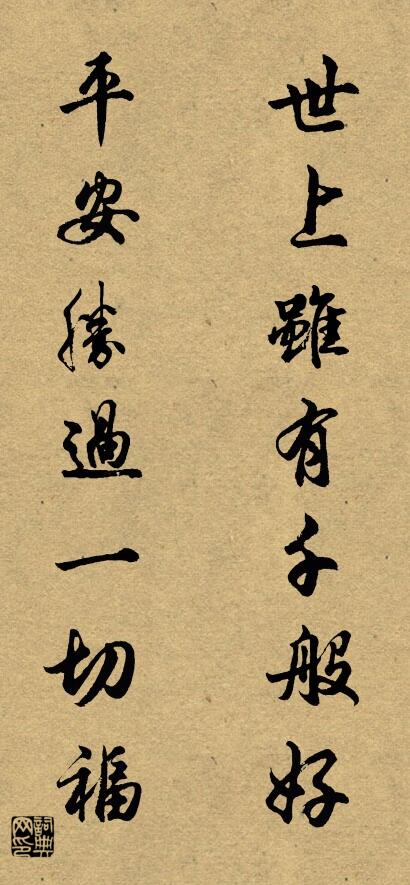 世上雖有千般好
平安勝過一切福
詞典网印